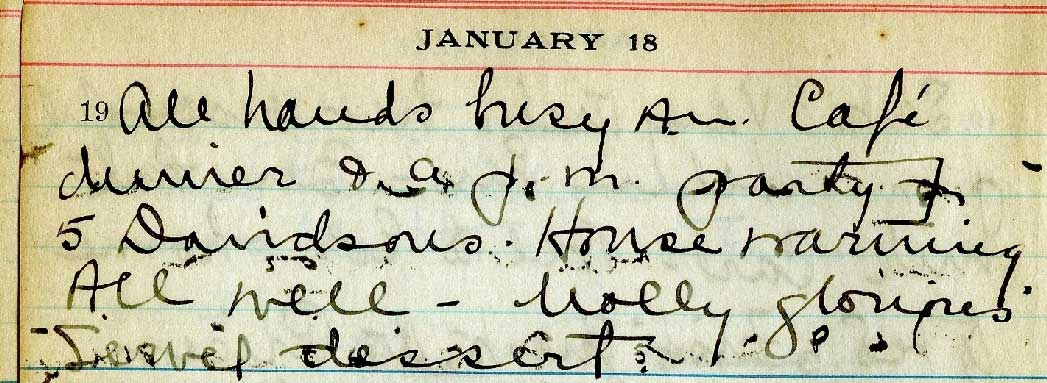 JANUARY 18
19 All hands busy A.m. Café
dinner & a p.m. party
5 Davidsons. House warming
All well - Molly glorious
dessert